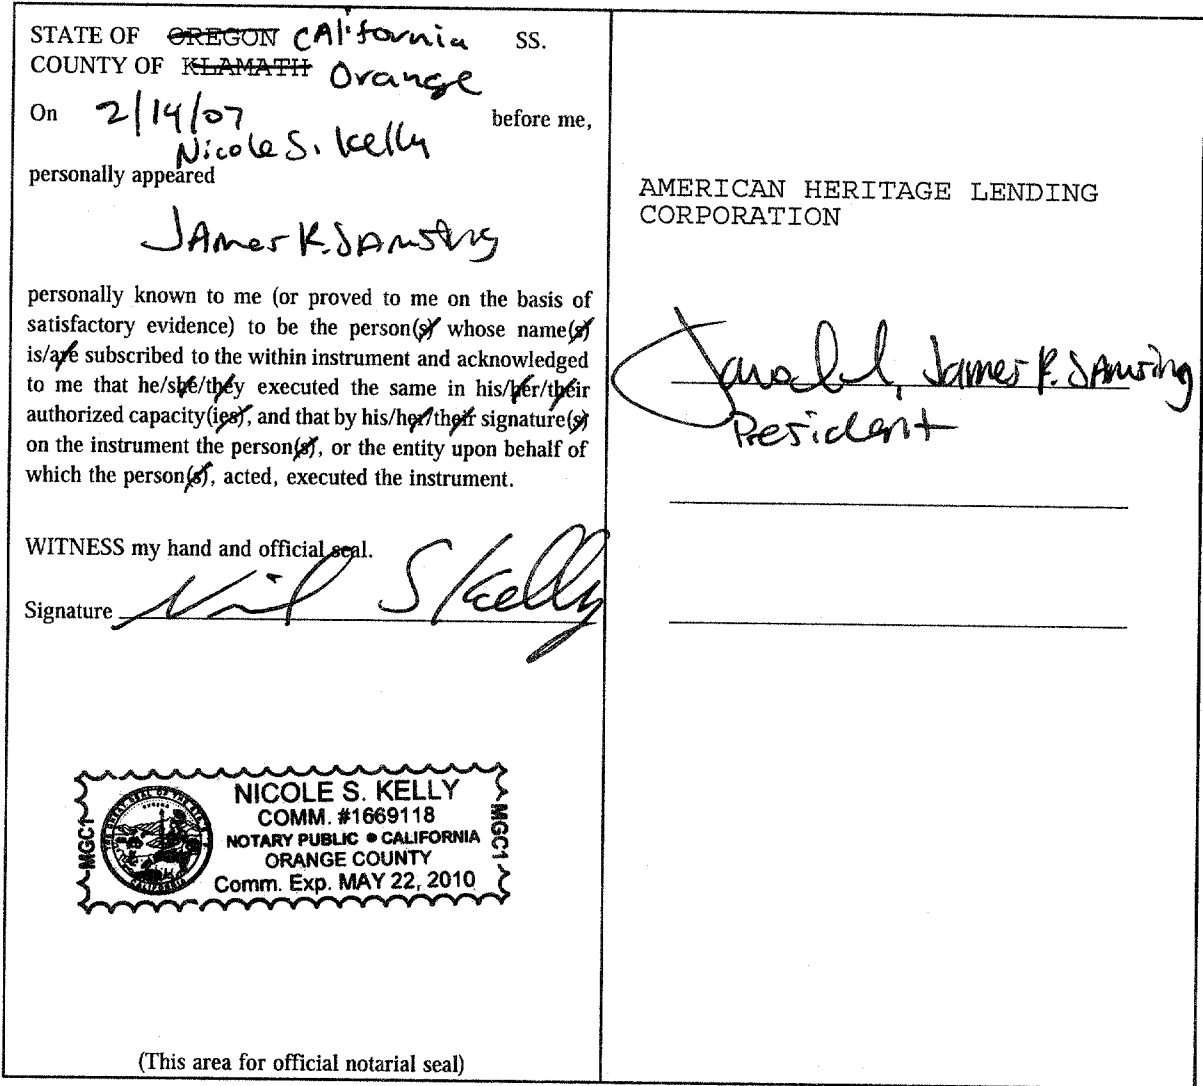 STATE OF OREGON CAlifornia SS.
COUNTY OF KLAMATH Orange
On 2/14/07 before me,
Nicole S. Kelly
personally appeared
JAmes K. SAmsing
personally known to me (or proved to me on the basis of
satisfactory evidence) to be the person(s) whose name(s)
is/are subscribed to the within instrument and acknowledged
to me that he/she/they executed the same in his/her/their
authorized capacity(ies), and that by his/her/their signature(s)
on the instrument the person(s), or the entity upon behalf of
which the person(s), acted, executed the instrument.
WITNESS my hand and official seal.
Signature Nicol S Kelly
MGC1
NICOLE S. KELLY
COMM. #1669118
NOTARY PUBLIC • CALIFORNIA
ORANGE COUNTY
Comm. Exp. MAY 22, 2010
MGC1
(This area for official notarial seal)
AMERICAN HERITAGE LENDING
CORPORATION
James K. SAmsing
President